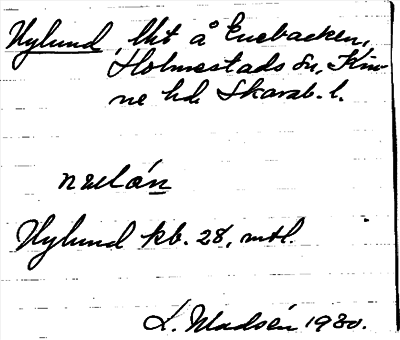 Nylund, lht å Enebacken,
Holmestads sn, Kin-
ne hd. Skarab. l.
Nylund kb. 28, mtl.
L. Madsén 1930.